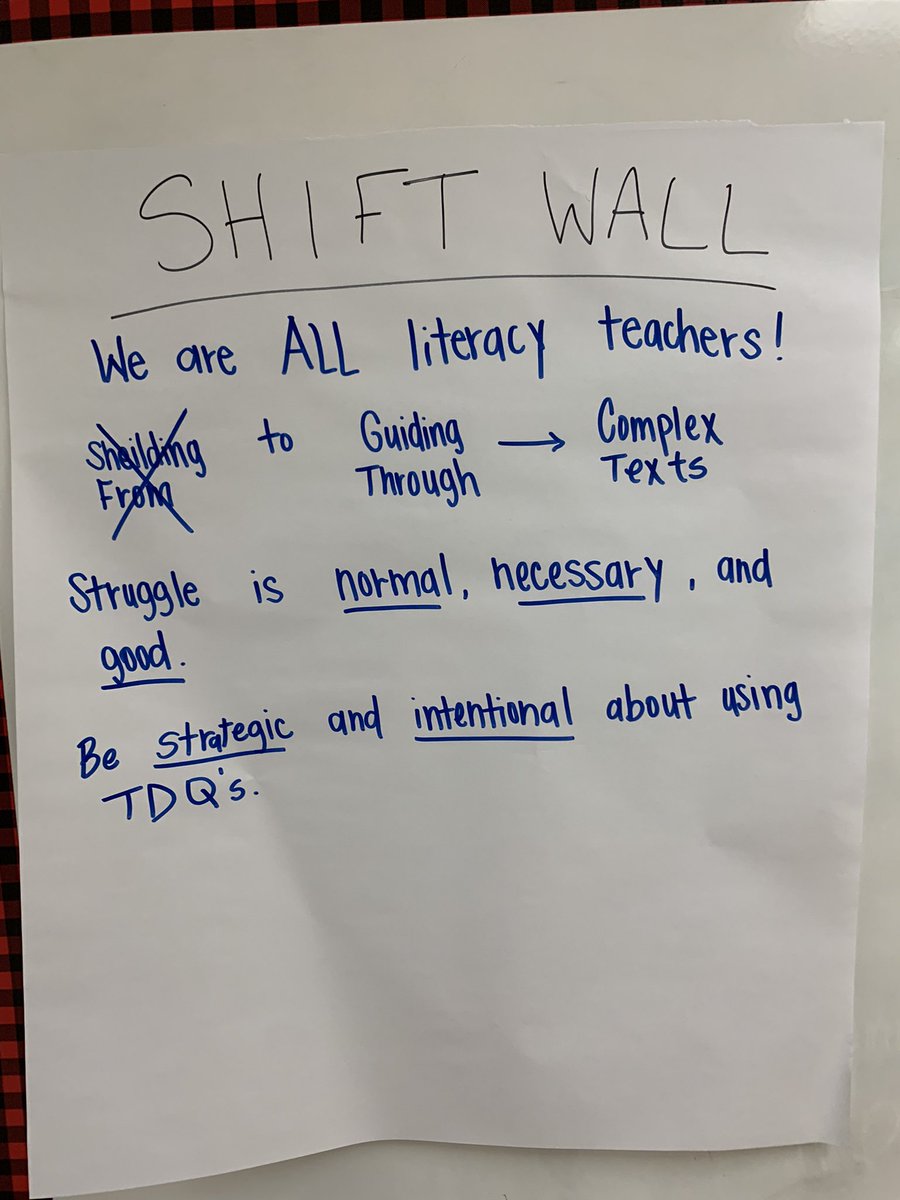 SHIFT WALL
We are ALL literacy teachers!
Sheilding to Guiding → Complex
From Through Texts
Struggle is normal, necessary, and
good.
Be strategic and intentional about using
TDQ's.